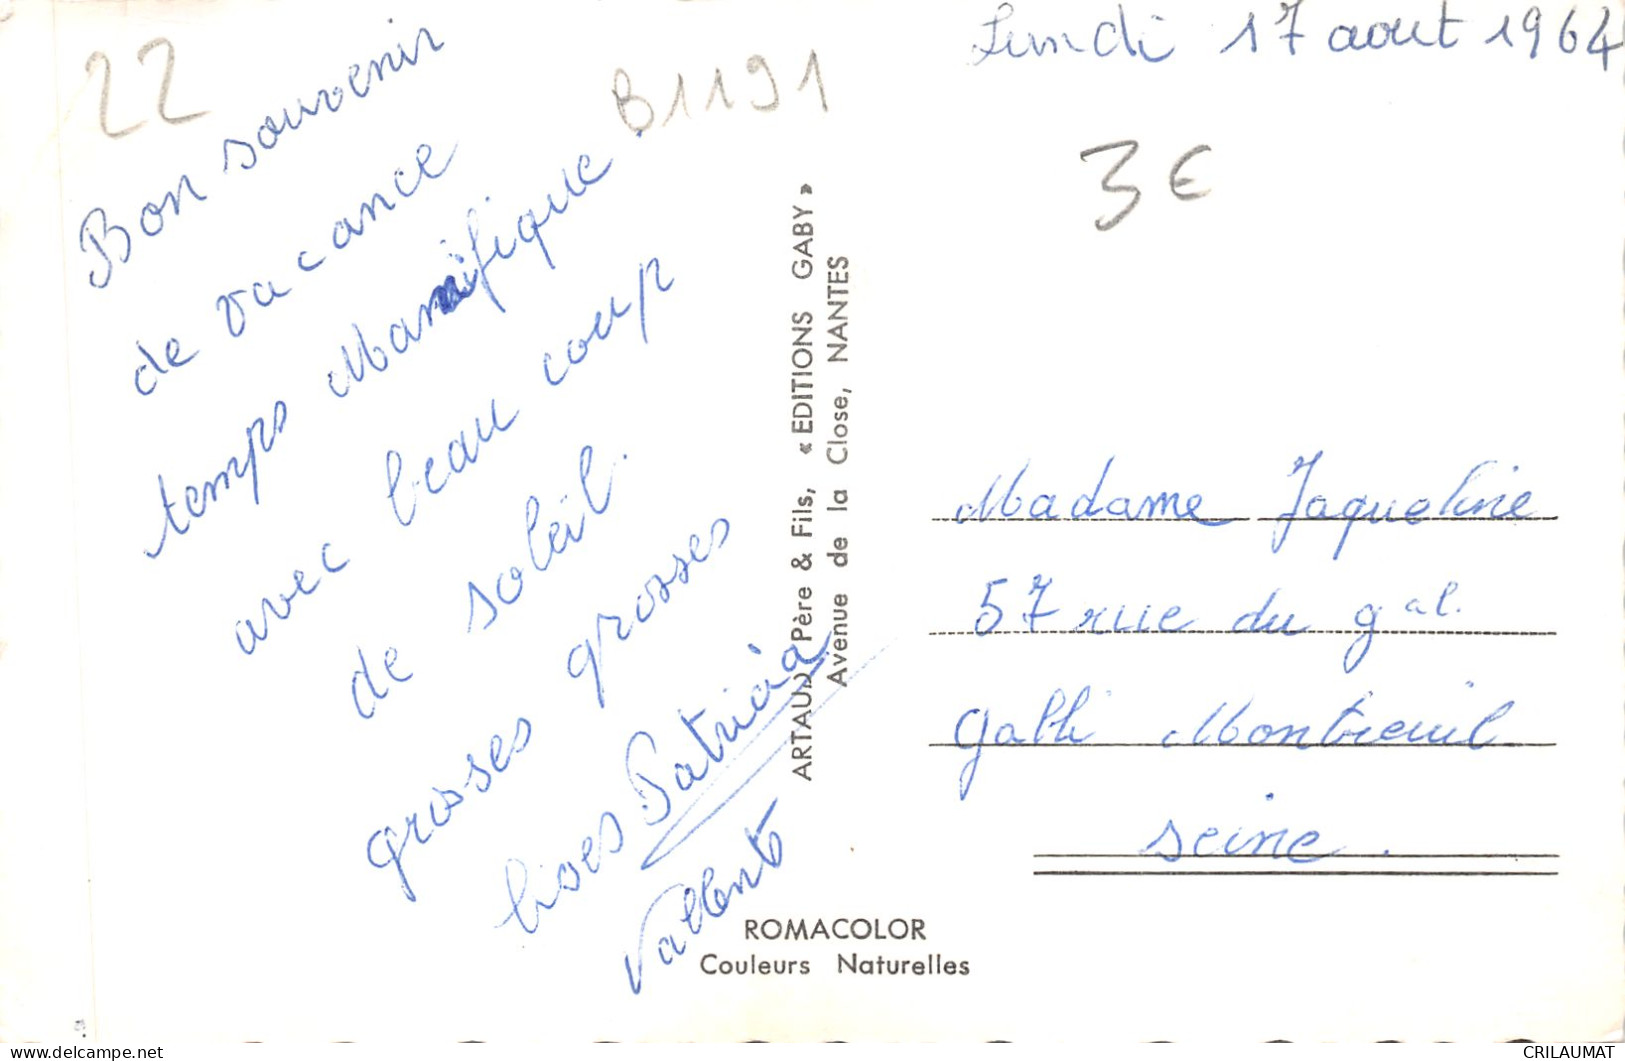 22
Bon souvenir
de vacance
temps Magnifique
avec beau coup
de soleil.
grosses grosses
bises Patricia
B1191
ARTAUD Père & Fils, « EDITIONS GABY »
Avenue de la Close, NANTES
ROMACOLOR
Couleurs Naturelles
Lundi 17 aout 1964
3 €
Madame Jaqueline
57 rue du gal.
Montreuil
seine.
delcampe.net
CRILAUMAT